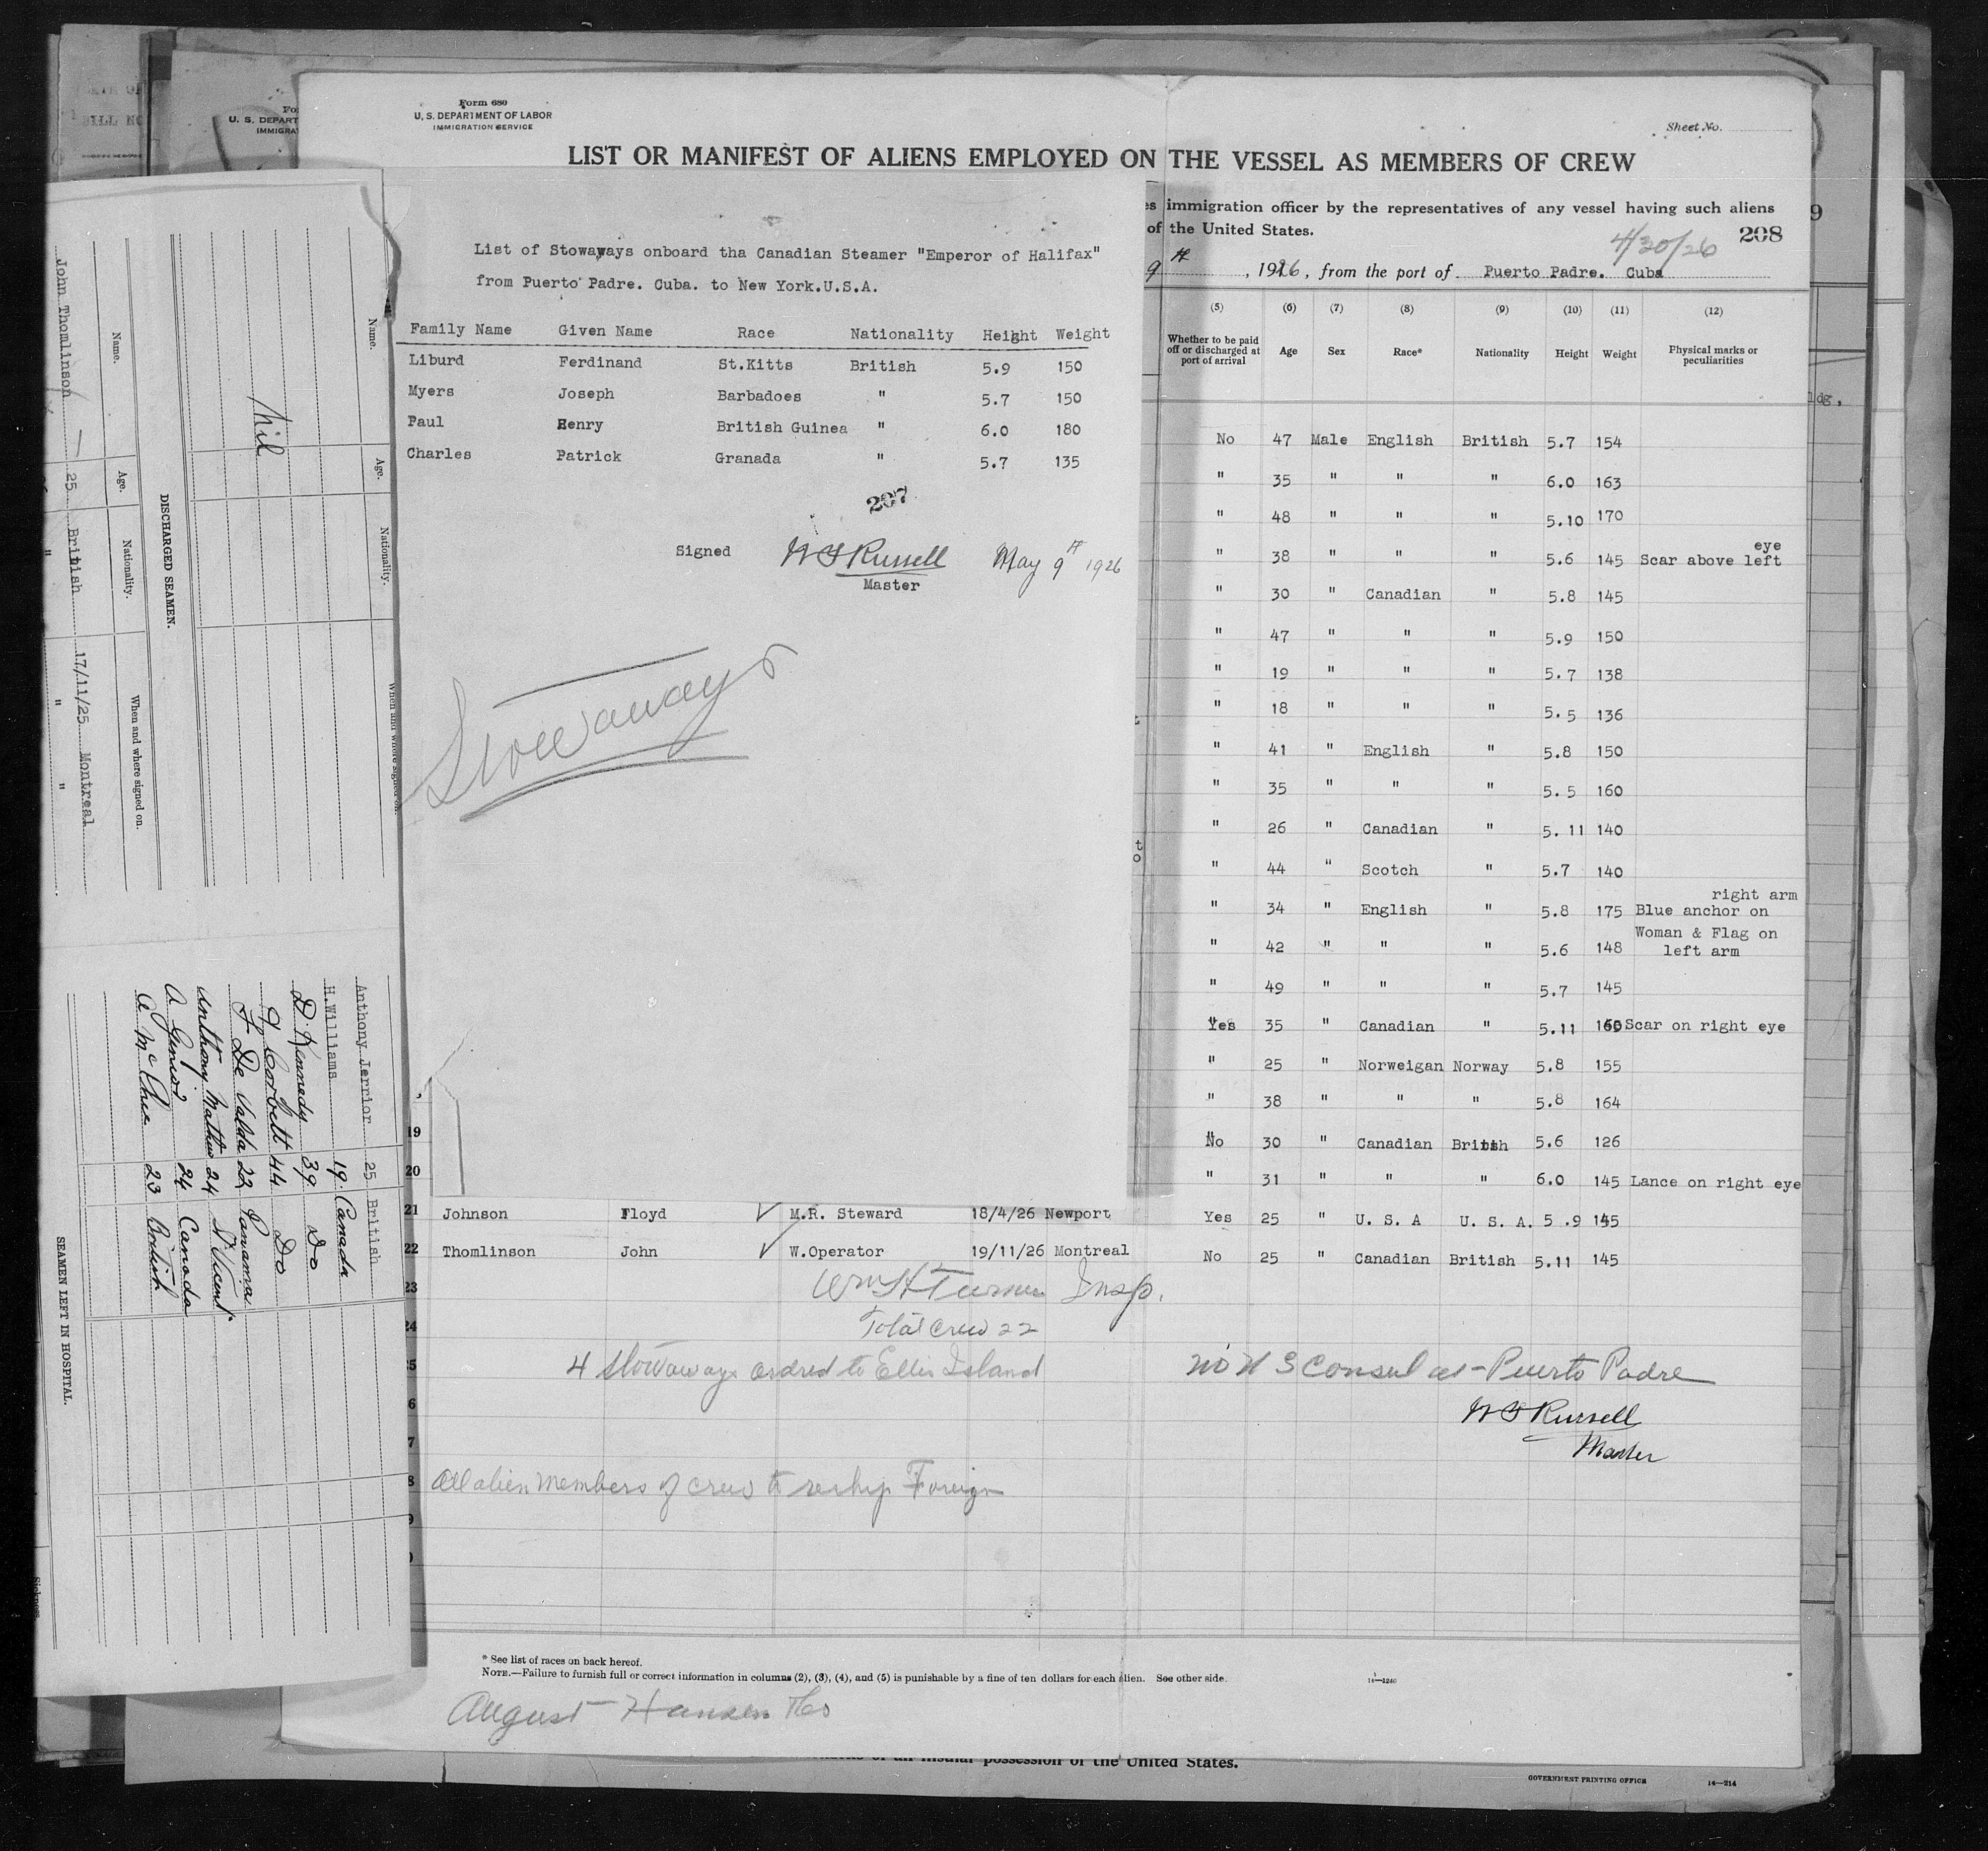 Form 680
U. S. DEPARTMENT OF LABOR
IMMIGRATION SERVICE
Sheet No.
LIST OR MANIFEST OF ALIENS EMPLOYED ON THE VESSEL AS MEMBERS OF CREW
immigration officer by the representatives of any vessel having such aliens
of the United States.
208
4/30/26
9th, 1926, from the port of Puerto Padre. Cuba
List of Stowaways onboard tha Canadian Steamer "Emperor of Halifax"
from Puerto Padre. Cuba. to New York.U.S.A.
Family Name Given Name Race Nationality Height Weight
Liburd Ferdinand St.Kitts British 5.9 150
Myers Joseph Barbadoes " 5.7 150
Paul Henry British Guinea " 6.0 180
Charles Patrick Granada " 5.7 135
207
Signed W S Russell May 9th 1926
Master
Stowaways
(5) (6) (7) (8) (9) (10) (11) (12)
Whether to be paid off or discharged at port of arrival Age Sex Race* Nationality Height Weight Physical marks or peculiarities
No 47 Male English British 5.7 154
" 35 " " " 6.0 163
" 48 " " " 5.10 170
" 38 " " " 5.6 145 Scar above left eye
" 30 " Canadian " 5.8 145
" 47 " " " 5.9 150
" 19 " " " 5.7 138
" 18 " " " 5.5 136
" 41 " English " 5.8 150
" 35 " " " 5.5 160
" 26 " Canadian " 5.11 140
" 44 " Scotch " 5.7 140
" 34 " English " 5.8 175 Blue anchor on right arm
" 42 " " " 5.6 148 Woman & Flag on left arm
" 49 " " " 5.7 145
Yes 35 " Canadian " 5.11 160 Scar on right eye
" 25 " Norweigan Norway 5.8 155
" 38 " " " 5.8 164
19 No 30 " Canadian British 5.6 126
20 " 31 " " " 6.0 145 Lance on right eye
21 Johnson Floyd M.R. Steward 18/4/26 Newport Yes 25 " U. S. A U. S. A. 5 .9 145
22 Thomlinson John W.Operator 19/11/26 Montreal No 25 " Canadian British 5.11 145
23 Wm H Turner Insp.
24 Total Crew 22
4 Stowaways ordred to Ellis Island
No U S Consul at Puerto Padre
W S Russell
Master
All alien members of crew to reship Foreign
* See list of races on back hereof.
NOTE.—Failure to furnish full or correct information in columns (2), (3), (4), and (5) is punishable by a fine of ten dollars for each alien. See other side.
14—1240
August Hansen
insular possession of the United States.
GOVERNMENT PRINTING OFFICE 14—214
U. S. DEPART
Name. Age. Nationality. When and where signed on.
Nil
DISCHARGED SEAMEN.
Name. Age. Nationality. When and where signed on.
John Thomlinson 25 British 17/11/25 Montreal
" " "
Anthony Jerrior 25 British
H.Williams 19 Canada
D. Kennedy 39 Do
Corbett 44 Do
De Valda 22 Panama
Anthony Mathew 24 St Vicent
A 24 Canada
A McPhee 23 British
SEAMEN LEFT IN HOSPITAL.
ldg,